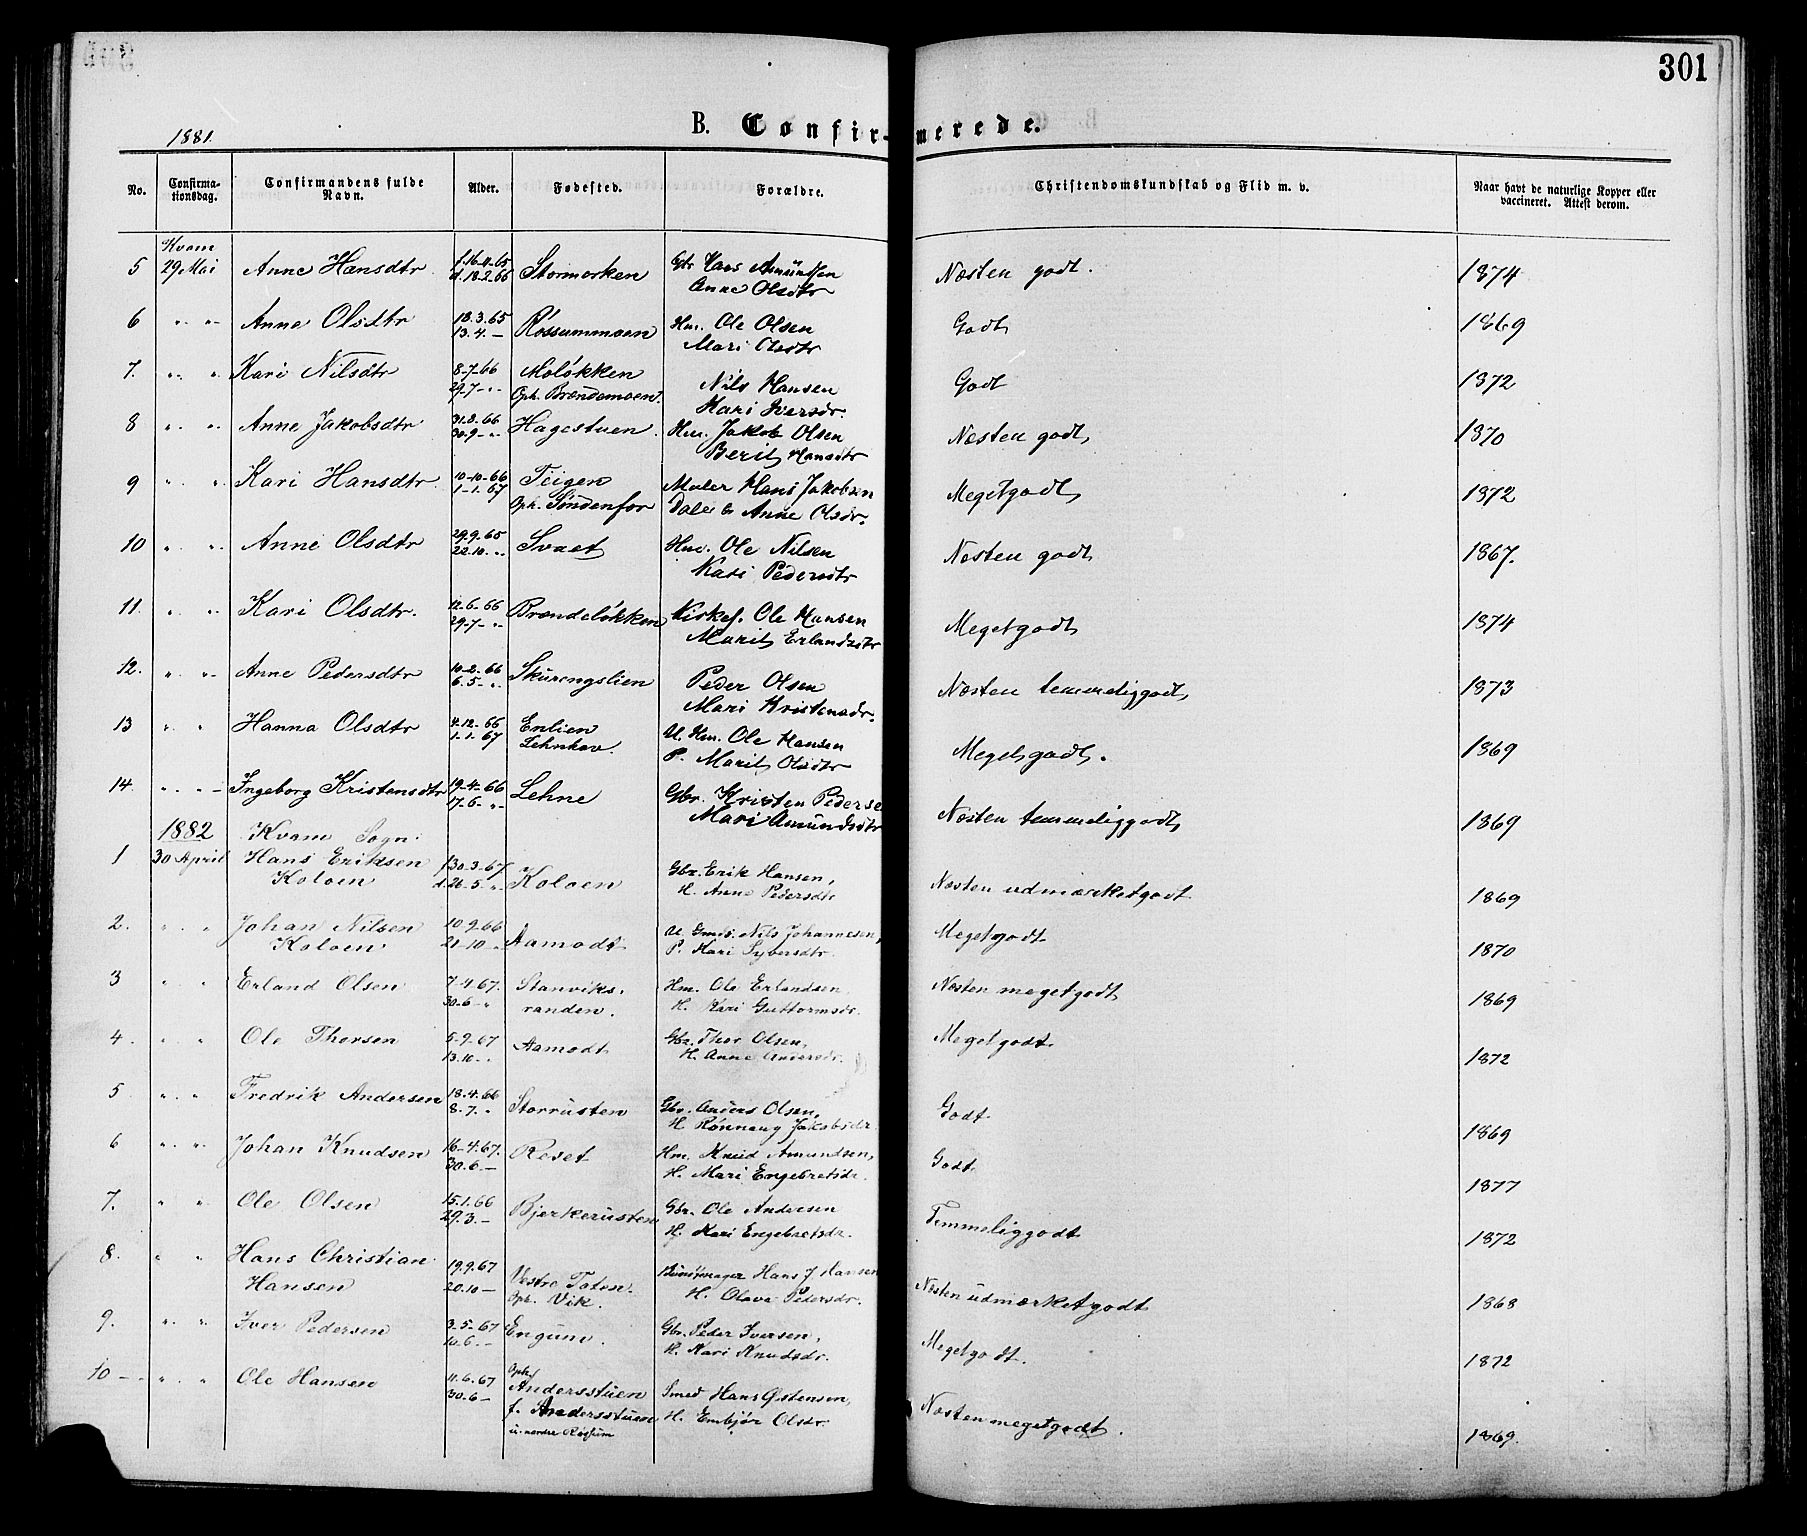 301
1881.
B. Confirmerede.
No. Confirmationsdag. Confirmandens fulde Navn. Alder. Fødested. Forældre. Christendomskundskab og Flid m. v. Naar havt de naturlige Kopper eller vaccineret. Attest derom.
Kvam
5 29 Mai Anne Hansdtr f. 16-4-65 Stormorken Gbr Hans Amundsen Næsten godt. 1874
d. 18-2-66 Anne Olsdtr
6 " " Anne Olsdtr 18.3.65 Røssummoen Hm. Ole Olsen Godt 1869
13.4.— Mari Olsdtr
7. " " Kari Nilsdtr 8-7-66 Moløkken Nils Hansen Godt 1872
29-7-" Oph. Brændemoen. Kari Iversdr.
8 " " Anne Jakobsdtr 31-8-66 Hagestuen. Hm. Jakob Olsen Næsten godt 1870
30-9-" Berit Hansdtr
9 " " Kari Hansdtr 10-10-66 Teigen Maler Hans Jakobsen Megetgodt 1872
1-1-67 Oph. Søndenfor Dale & Anne Olsdr.
10 " " Anne Olsdtr 29.9.65 Svaet Hm. Ole Nilsen Næsten godt 1867.
22.10." Kari Pedersdtr
11. " " Kari Olsdtr. 12-6-66 Brændeløkken Kirkes. Ole Hansen Megetgodt 1874
29-7-" Marit Erlandsdtr
12. " " Anne Pedersdtr 10-2-66 Skurengslien Peder Olsen Næsten temmeliggodt 1873
6.5-" Mari Kristensdr.
13 " " Hanna Olsdtr 4-12-66 Enlien U. Hm. Ole Hansen Megetgodt. 1869
1-1-67 Lehnkov. P. Marit Olsdtr
14. " " Ingeborg Kristensdtr 19-4-66 Lehne Gbr. Kristen Pederse Næsten temmeliggodt 1869
17-6-" Mari Amundsdtr
1882 Kvam Sogn.
1 30 April Hans Eriksen f 30-3-67 Koloen Gbr. Erik Hansen, Næsten udmærketgodt 1869
Koloen d. 26-5-" H. Anne Pedersdtr
2. " " Johan Nilsen 10-9-66 Aamodt U. Gmd. Nils Johannesen, Megetgodt 1870
Koloen. 21-10-" P. Kari Syversdtr.
3 " " Erland Olsen 7-4-67. Stanviks- Hm. Ole Erlandsen Næsten megetgodt 1869
30-6-" randen. H. Kari Guttormsdr.
4. " " Ole Thorsen 5-9-67 Aamodt Gbr. Thor Olsen, Megetgodt. 1872
13.10-. H. Anne Andersdr.
5 " " Fredrik Andersen 18.4.66 Storrusten Gbr. Anders Olsen, Godt 1869
8.7." H. Rønnaug Jakobsdr
6 " " Johan Knudsen 16-4-67. Reset Hm. Knud Amundsen, Godt 1877
30.6.— H. Mari Engebretsdr.
7. " " Ole Olsen 15.1.66 Bjerkerusten Gbr. Ole Andersen Temmeliggodt 1872
29.3.— H. Kari Engebretsdr.
8. " " Hans Christian 19.9.67 Vestre Toten. Buntmager Hans J Hansen Næsten udmærketgodt 1868
Hansen 20.10— Oph. Vik. H. Olava Pedersdr.
9. " " Iver Pedersen 3-5-67 Engum. Gbr. Peder Iversen, Megetgodt. 1872
10.6.— H. Kari Knudsdr.
10 " " Ole Hansen 11.6.67 Oph. Andersstuen Smed Hans Østensen, Næsten megetgodt. 1869.
30.6— f. Andersstuen H. Embjør Olsdr.
u. nordre Røssum